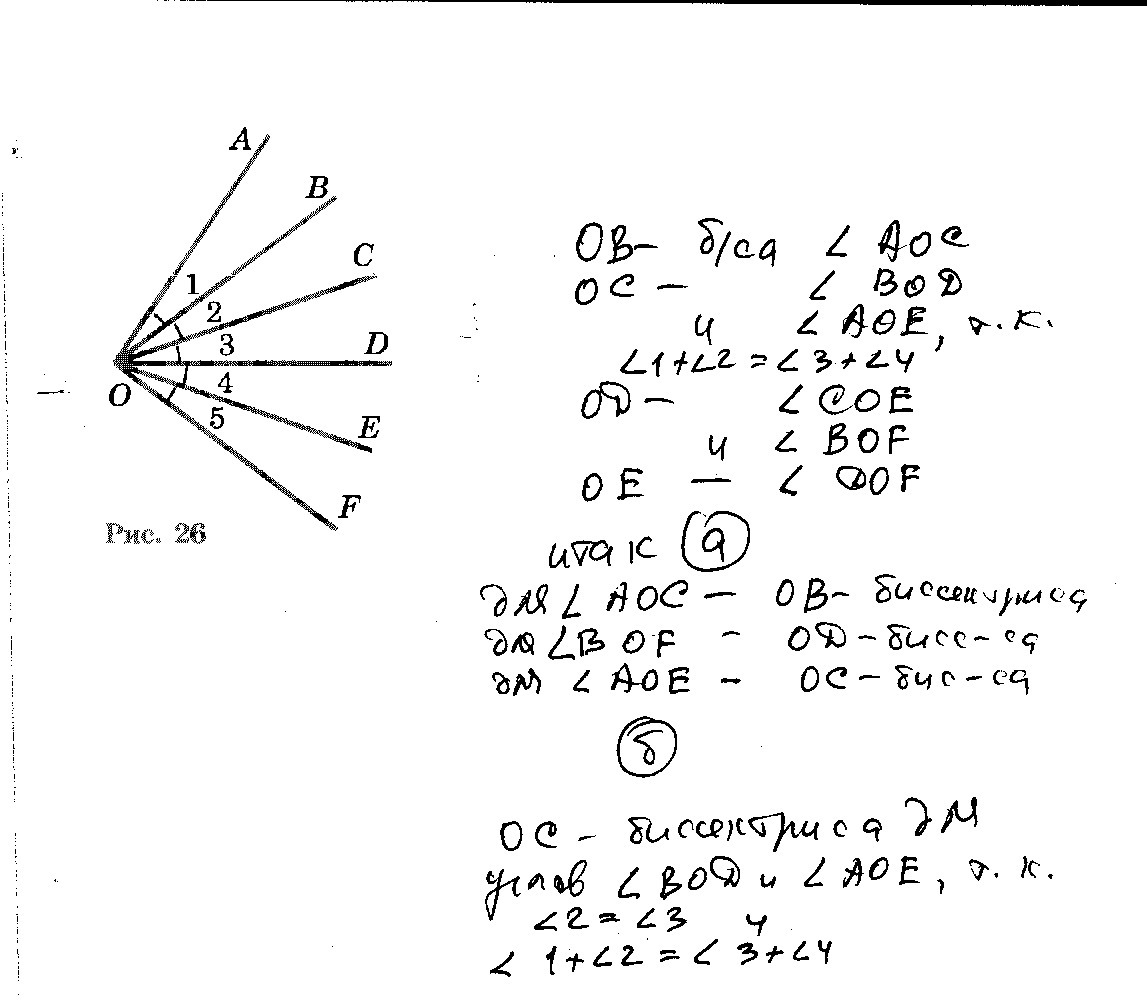 A
B
C
1
2
3
D
O
4
5
E
F
Рис. 26
OB- б/са ∠ AOC
OC - ∠ BOD
и ∠ AOE, т. к.
∠1+∠2=∠3+∠4
OD - ∠ COE
и ∠ BOF
OE - ∠ DOF
итак а
для ∠ AOC - OB- биссектриса
для ∠BOF - OD-бисс-са
для ∠ AOE - OC-бис-са
б
OC - биссектриса для
углов ∠BOD и ∠AOE, т. к.
∠2=∠3 и
∠ 1+∠2=∠ 3+∠4